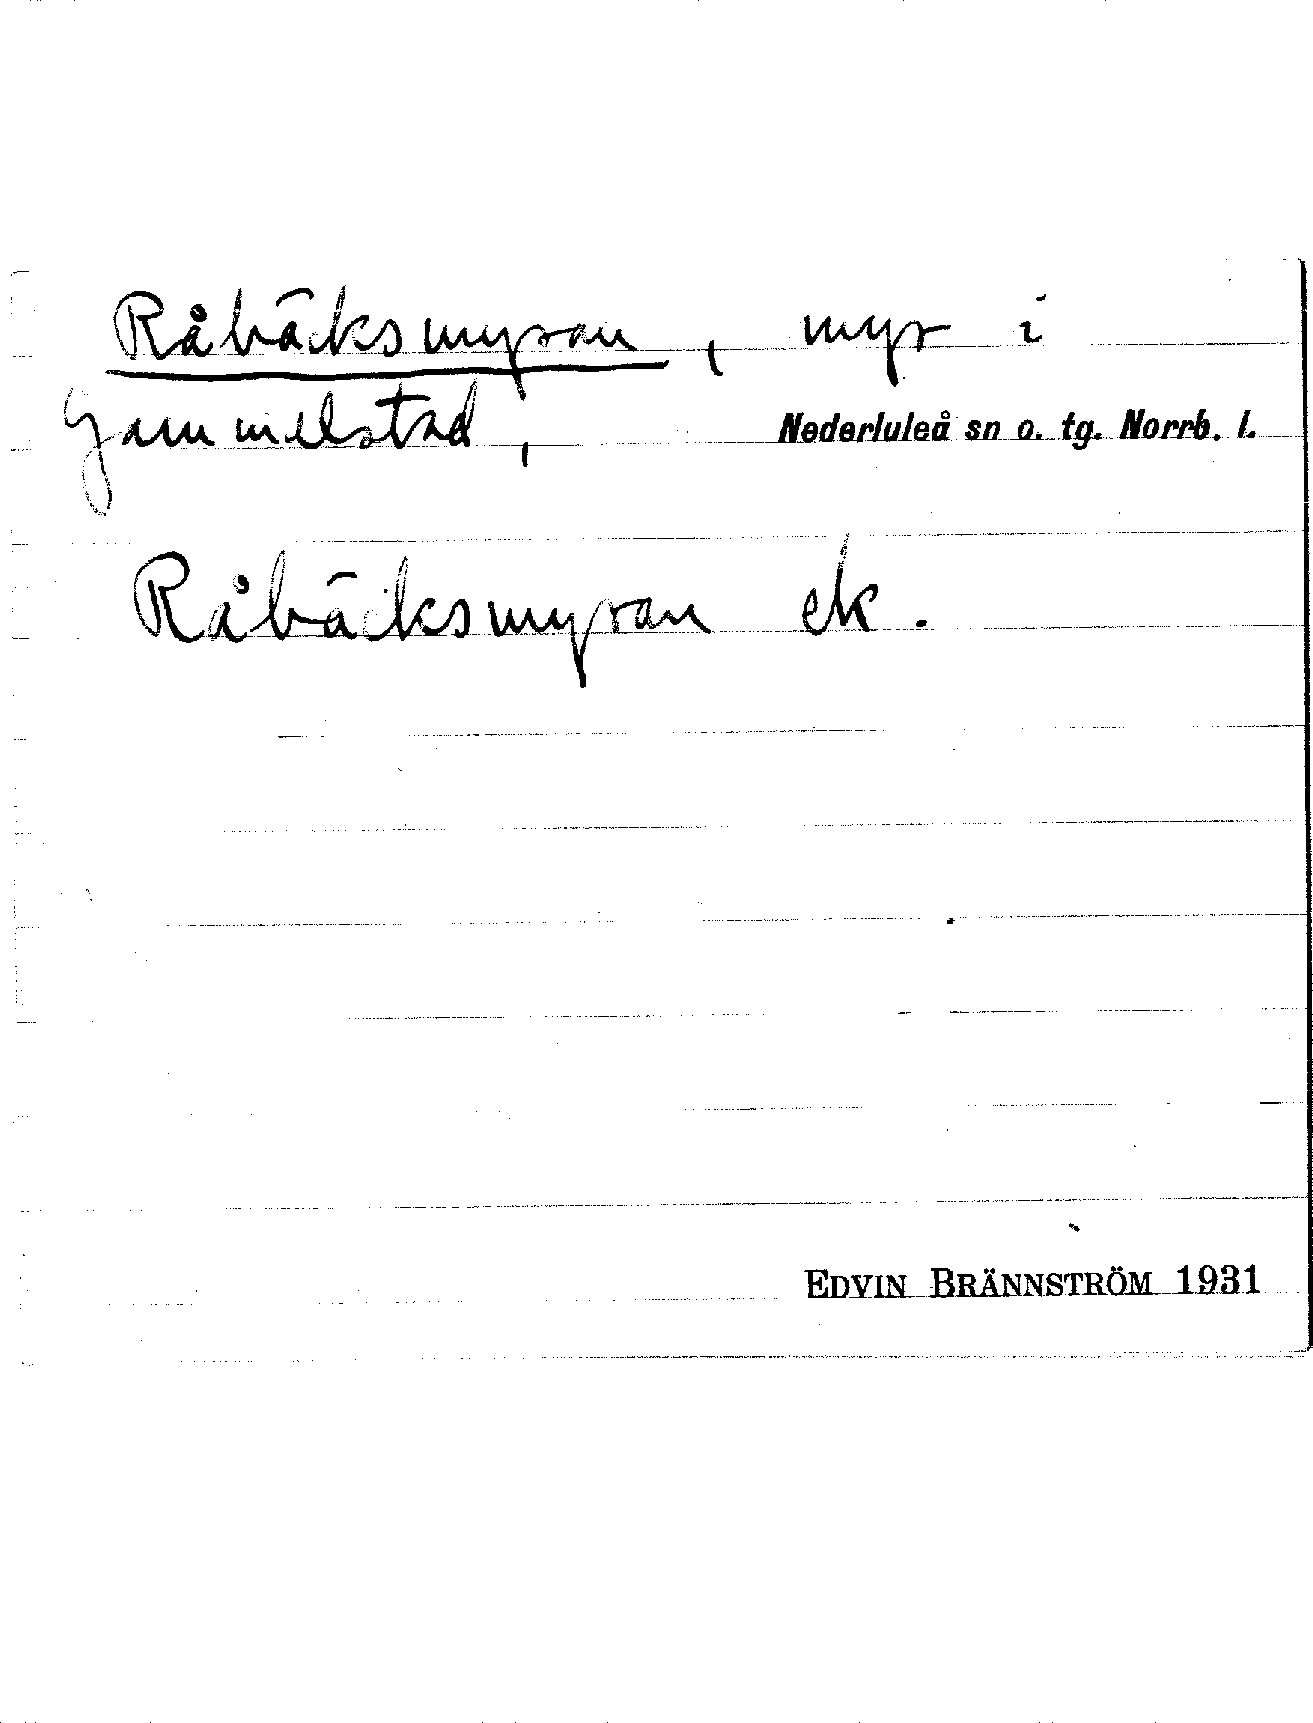 Råbäcksmyran, myr i
Gammelstad, Nederluleå sn o. tg. Norrb. l.
Råbäcksmyran ek.
EDVIN BRÄNNSTRÖM 1931